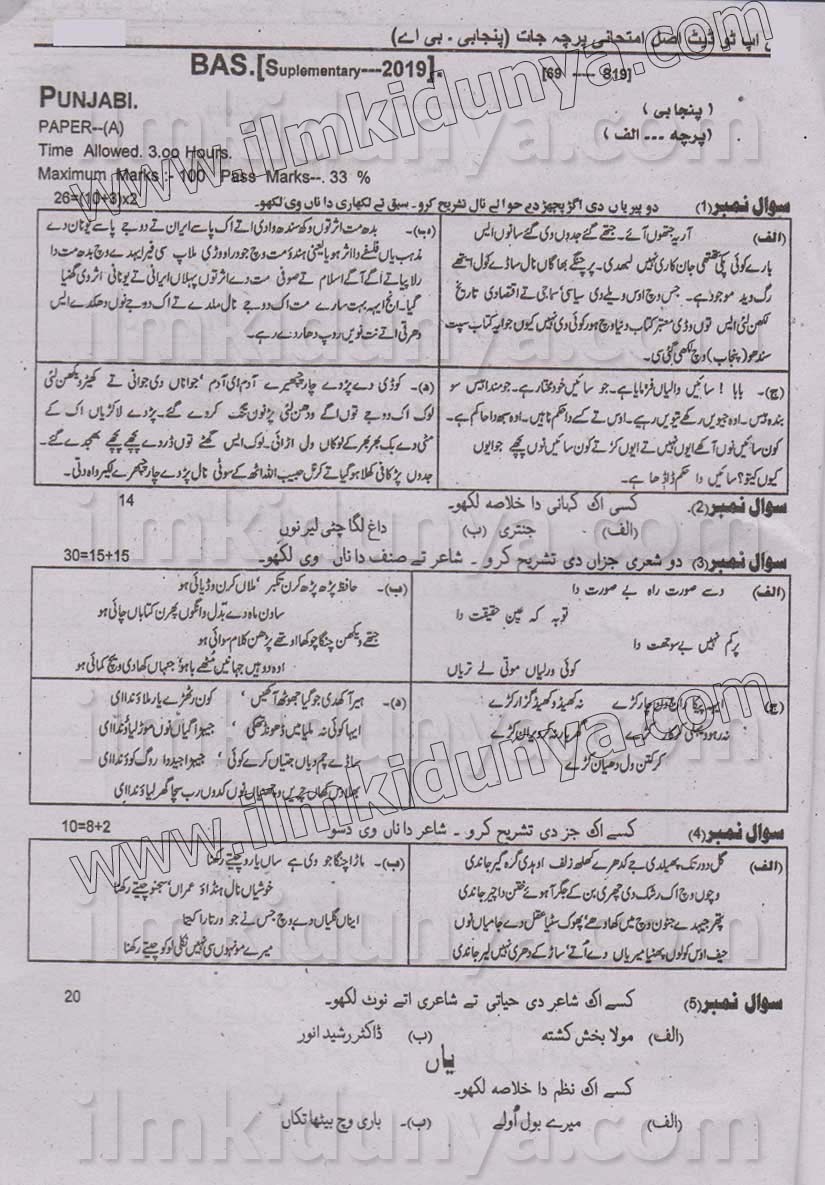 اپ ٹو ڈیٹ اصل امتحانی پرچہ جات (پنجابی - بی اے)
BAS.[Suplementary---2019].
[69 ---- 819]
PUNJABI.
(پنجابی)
PAPER--(A)
(پرچہ --- الف)
Time Allowed. 3.oo Hours.
Maximum Marks :- 100 Pass Marks--. 33 %
سوال نمبر(1) دو پیریاں دی اگڑ پچھڑ دے حوالے نال تشریح کرو۔ سبق تے لکھاری دا ناں وی لکھو۔ 26=(10+3)x2
(الف) آریہ جتھوں آئے۔ جتھے گئے جدوں وی گئے سانوں ایس
بارے کوئی پکی پتھی جان کاری نہیں لبھدی۔ پر چنگے بھاگاں نال ساڈے کول ایتھے
رگ وید موجود ہے۔ جس وچ اوس ویلے دی سیاسی، سماجی تے اقتصادی تاریخ
لکھن لئی ایس توں وڈی معتبر کتاب دنیا وچ ہور کوئی وی نہیں کیوں جو ایہ کتاب سپت
سندھو (پنجاب) وچ لکھی گئی سی۔
(ب)- بدھ مت اثر توں وکھ سندھ وادی اتے اک پاسے ایران تے دوجے پاسے یونان دے
مذہب یاں فلسفے دا اثر ہویا یعنی ہندو مت وچ جو دراوڑی ملاپ سی فیر ایہدے وچ بدھ مت دا
رلا پیا تے اگے آ گے اسلام تے صوفی مت دے اثر توں پہلاں ایرانی تے یونانی اثر وی گھلیا
گیا۔ انج ایہہ بہت سارے مت اک دوجے نال ملدے تے اک دوجے نوں دھکدے ایس
دھرتی اتے نت نویں روپ دھاردے رہے۔
(ج)- بابا! سائیں والیاں فرمایا ہے۔ جو سائیں خود مختار ہے۔ جو مندا تیس سو
بندہ تیس۔ اوہ جیویں رکھے تیویں رہے۔ اوس تے کسے دا حکم ناہیں۔ اوہ سبھ دا حاکم ہے۔
کون سائیں نوں آکھے ایوں نہیں تے ایوں کرتے کون سائیں نوں پچھے جو ایوں
کیوں کیتو؟ سائیں دا حکم ڈاڈھا ہے۔
(د)- کوڈی دے پڑ دے چار چپھیرے آدم ای آدم، جواناں دی جوانی تے کھیڈ ویکھن لئی
لوک اک دوجے توں اگے ودھن لئی پڑ نوں تنگ کردے گئے۔ پڑ دے لاگڑیاں اک کے
مٹی دے بک بھر بھر کے لوکاں ول اڑائی۔ لوک ایس گھٹے توں ڈردے پچھے پچھے بھجدے گئے۔
جدوں پڑ کافی کھلا ہو گیا تے کرنل حبیب اللہ اٹھ کے سوٹی نال پڑ دے چار چپھیرے لکیر واہ دتی۔
سوال نمبر(2). کسی اک کہانی دا خلاصہ لکھو۔ 14
(الف) جنتری (ب) داغ لگا چٹی لیر نوں
سوال نمبر(3) دو شعری جزاں دی تشریح کرو ۔ شاعر تے صنف دا ناں وی لکھو۔ 30=15+15
(الف) دسے صورت راہ بے صورت دا
توبہ کہ عین حقیقت دا
پر کم نہیں بے سوجھت دا
کوئی ورلیاں موتی لے تریاں
(ب)- حافظ پڑھ پڑھ کرن تکبر، ملاں کرن وڈیائی ہو
ساون ماہ دے بدل وانگوں پھرن کتاباں چائی ہو
جتھے ویکھن چنگا چوکھا اوتھے پڑھن کلام سوائی ہو
اوہ دوہیں جہانیں مٹھے باہو، جنہاں کھادی ویچ کمائی ہو
(ج) نہ کھیڈ وکھیڈ گزار کڑے
کر کتن ول دھیان کڑے
(د)- ہیر آکھدی جوگیا جھوٹھ آکھیں، کون رٹھڑے یار ملاوندا ای
ایہا کوئی نہ ملیا میں ڈھونڈ تھکی، جیہڑا گیاں نوں موڑ لیاوندا ای
ساڈے چم دیاں جتیاں کرے کوئی، جیہڑا جیو دا روگ گواوندا ای
بھلا دس کھاں چریں وچھنیاں نوں کدوں رب سچا گھر لیاوندا ای
سوال نمبر(4) کسے اک جز دی تشریح کرو ۔ شاعر دا ناں وی دسو 10=8+2
(الف) گل دور تک پھیلدی جے کدھرے کھلھ زلف اوہدی گرہ گیر جاندی
وچوں وچ اک رشک دی چھری بن کے جگر آہوئے ختن دا چیر جاندی
پتھر جیہدے جنون وچ میں کھادھے، پھوک سٹیا عقل دے جامیاں نوں
حیف اوس کولوں پھٹیا میریاں دے اُتے، ساڑ کے دھری نہیں لیر جاندی
(ب)- ماڑا چنگا جو وی ہے ساں یارو چیتے رکھنا
خوشیاں نال ہنڈاؤ عمراں سجنو چیتے رکھنا
ایناں گلیاں دے وچ جس نے جو ورتارا کیتا
میرے مونہوں سی نہیں نکلی لوکو چیتے رکھنا
سوال نمبر(5) کسے اک شاعر دی حیاتی تے شاعری اتے نوٹ لکھو۔ 20
(الف) مولا بخش کشتہ (ب) ڈاکٹر رشید انور
یاں
کسے اک نظم دا خلاصہ لکھو۔
(الف) میرے بول اُولے (ب)- باری وچ بیٹھا تکاں
www.ilmkidunya.com